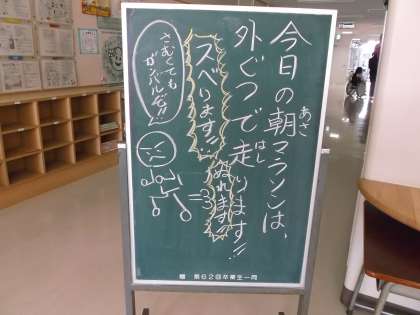 今日の朝マラソンは、
あさ
外ぐつで走ります!!
はし
スベります!!
ぬれます!!
さむくても
ガンバルぞ!!
贈 第62回卒業生一同